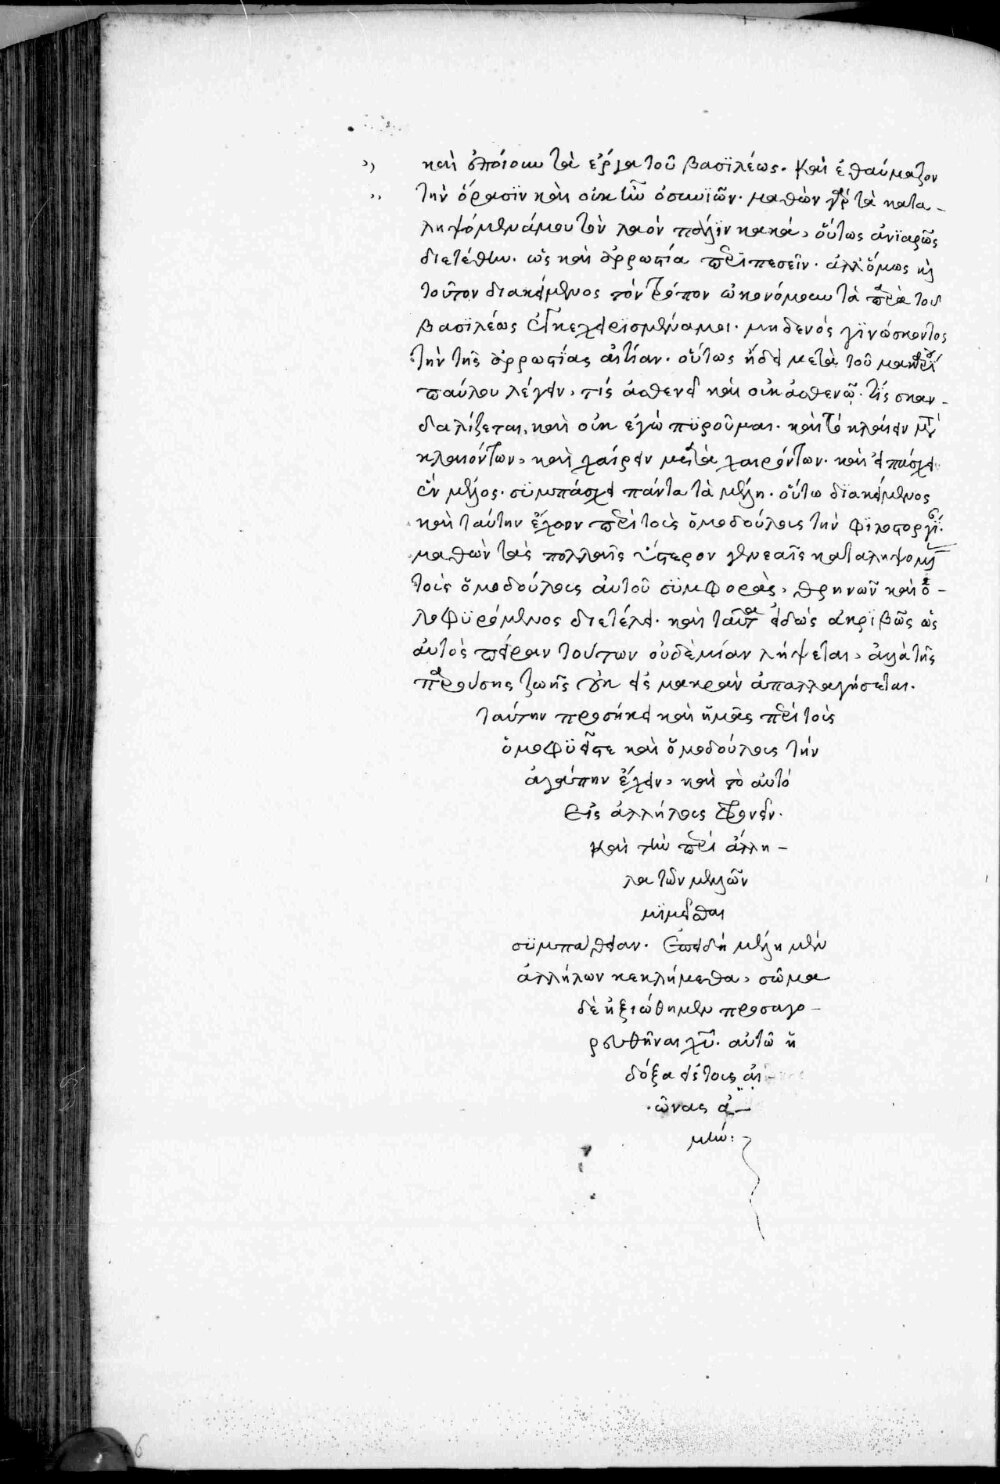 καὶ ἐποίουν τὰ ἔργα τοῦ βασϊλέως. καὶ ἐθαύμαζον
τὴν ὅρασϊν καὶ οὐκ ἦν ὁ συνϊῶν. μαθὼν γὰρ τὰ κατα-
ληψόμενα μου τὸν λαὸν πάλϊν κακὰ, οὕτως ἀνϊαρῶς
διετέθην. ὡς καὶ ἀρρωστία περιπεσεῖν. ἀλλ' ὅμως καὶ
τοῦτον διακείμενος τὸν τρόπον ᾠκονόμουν τὰ παρὰ τοῦ
βασϊλέως ἐγκεχειρϊσμένα μοι. μηδενὸς γϊνώσκοντος
τὴν τῆς ἀρρωστίας αἰτίαν. οὗτος ἤδε μετὰ τοῦ μακαρίου
παύλου λέγειν, τίς ἀσθενεῖ καὶ οὐκ ἀσθενῶ. τίς σκαν-
δαλίζεται, καὶ οὐκ ἐγὼ πυροῦμαι. καὶ τὸ κλαίειν μετὰ
κλαιόντων, καὶ χαίρειν μετὰ χαιρόντων. καὶ εἰ πάσχει
ἓν μέλος. σϋμπάσχει πάντα τὰ μέλη. οὕτω δϊακείμενος
καὶ ταύτην ἔχων περὶ τοὺς ὁμοδούλους τὴν φϊλοστοργίαν.
μαθὼν τὰς πολλαῖς ὕστερον γενεαῖς καταληψομένας
τοὺς ὁμοδούλους αὐτοῦ σϋμφορὰς, θρηνῶν καὶ ὀ-
λοφϋρόμενος διετέλει. καὶ ταῦτα εἰδὼς ἀκρϊβῶς ὡς
αὐτὸς πεῖραν τούτων οὐδεμίαν λήψεται, ἀλλὰ τῆς
παρούσης ζωῆς οὐκ εἰς μακρὰν ἀπαλλαγήσεται.
ταύτην προσήκει καὶ ἡμᾶς περὶ τοὺς
ὁμοφϋεῖς τε καὶ ὁμοδούλους τὴν
ἀγάπην ἔχειν, καὶ τὸ αὐτὸ
εἰς ἀλλήλους φρονεῖν.
καὶ τὴν περὶ ἄλλη-
λα τῶν μελῶν
μϊμεῖσθαι
σϋμπάθειαν. ἐπειδὴ μέλη μὲν
ἀλλήλων κεκλήμεθα, σῶμα
δὲ ἠξιώθημεν προσαγο-
ρευθῆναι χῦ. αὐτῶ ἡ
δόξα εἰς τοὺς αἰ-
ῶνας ἀ-
μήν: